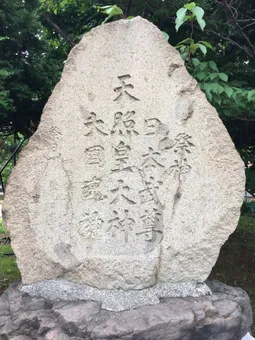 祭神
日本武尊
天照皇大神
大国魂神